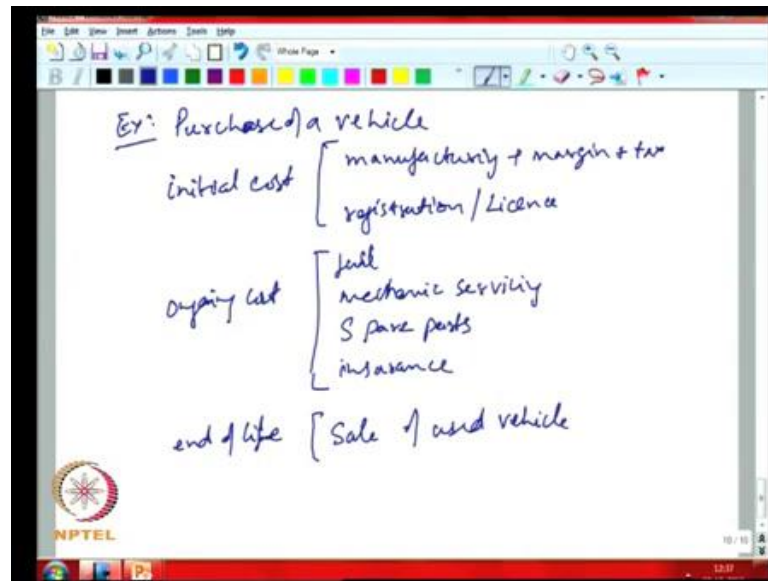 File Edit View Insert Actions Tools Help
Whole Page
B I
Ex: Purchase of a vehicle
initial cost [ manufacturing + margin + tax
registration / Licence
ongoing cost [ fuel
mechanic servicing
Spare parts
insurance
end of life [ Sale of used vehicle
NPTEL
10 / 10
12:37